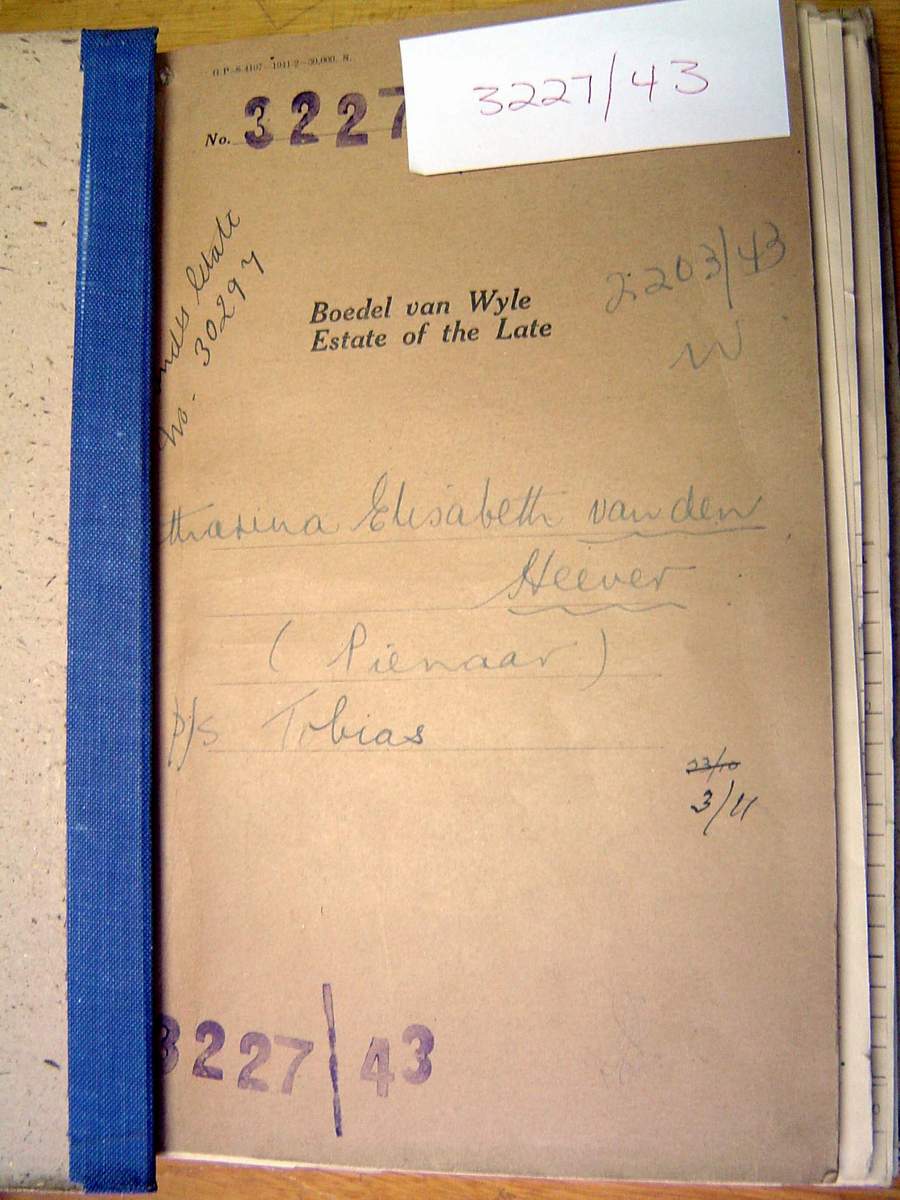 G.P.-S.4197-1941-2-30,000. S.
3227/43
No. 3227
ndes Estate
No. 30297
2203/43
W
Boedel van Wyle
Estate of the Late
tharina Elisabeth van den
Heever
(Pienaar)
p/s Tobias
23/10
3/11
3227/43